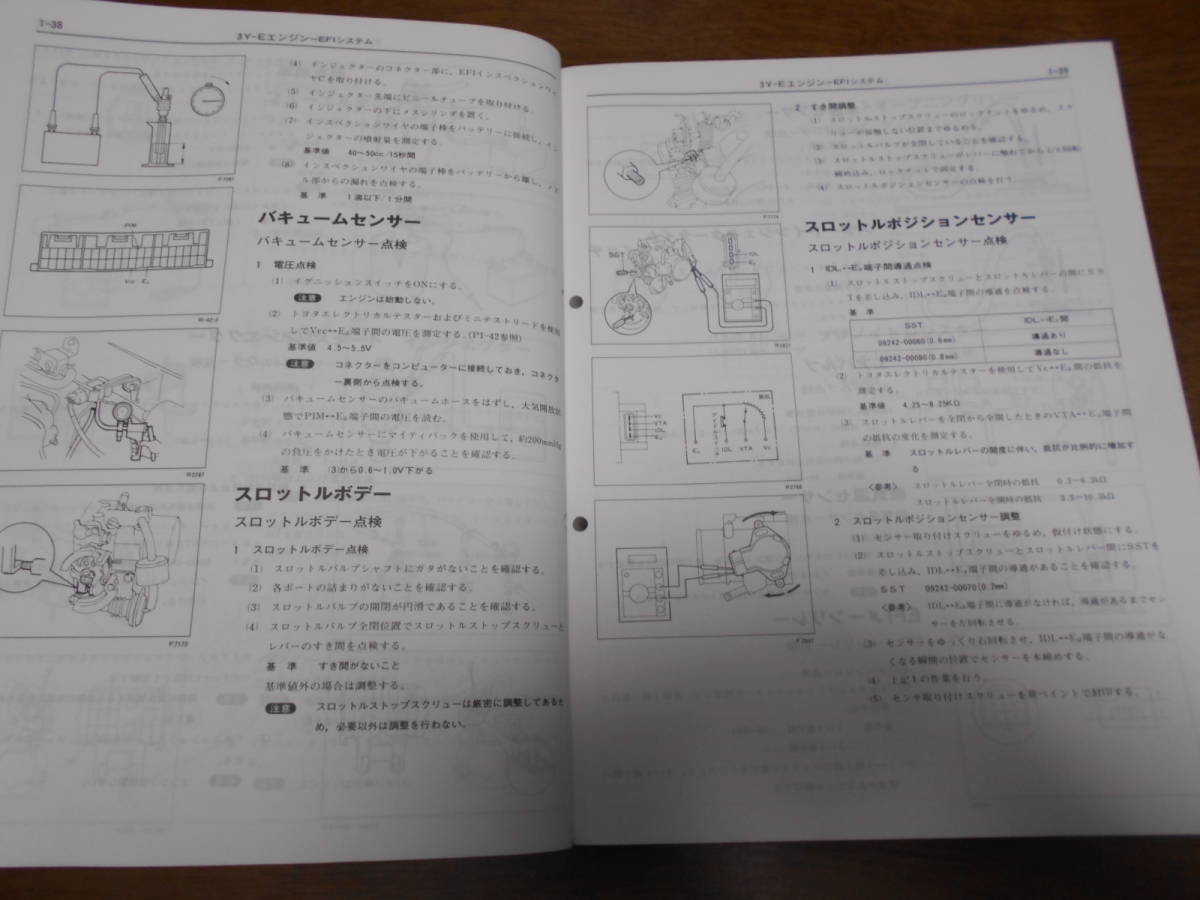 1-38
3Y-Eエンジン−EFIシステム
(4) インジェクターのコネクター部に，EFIインスペクションワイ
ヤCを取り付ける．
(5) インジェクター先端にビニールチューブを取り付ける．
(6) インジェクターの下にメスシリンダを置く．
(7) インスペクションワイヤの端子棒をバッテリーに接続し，イン
ジェクターの噴射量を測定する．
基準値 40〜50cc/15秒間
(8) インスペクションワイヤの端子棒をバッテリーから離し，ノズ
ル部からの漏れを点検する．
基 準 1滴以下/1分間
バキュームセンサー
バキュームセンサー点検
1 電圧点検
(1) イグニッションスイッチをONにする．
注意 エンジンは始動しない．
(2) トヨタエレクトリカルテスターおよびミニテストリードを使用
してVcc↔E₂端子間の電圧を測定する．(P1-42参照)
基準値 4.5〜5.5V
注意 コネクターをコンピューターに接続しておき，コネクタ
ー裏側から点検する．
(3) バキュームセンサーのバキュームホースをはずし，大気開放状
態でPIM↔E₂端子間の電圧を読む．
(4) バキュームセンサーにマイティバックを使用して，約200mmHg
の負圧をかけたとき電圧が下がることを確認する．
基 準 (3)から0.6〜1.0V下がる
スロットルボデー
スロットルボデー点検
1 スロットルボデー点検
(1) スロットルバルブシャフトにガタがないことを確認する．
(2) 各ポートの詰まりがないことを確認する．
(3) スロットルバルブの開閉が円滑であることを確認する．
(4) スロットルバルブ全閉位置でスロットルストップスクリューと
レバーのすき間を点検する．
基 準 すき間がないこと
基準値外の場合は調整する．
注意 スロットルストップスクリューは厳密に調整してあるた
め，必要以外は調整を行わない．
PIM
Vcc E₂
R2767
F7173
3Y-Eエンジン−EFIシステム
1-39
2 すき間調整
(1) スロットルストップスクリューのロックナットをゆるめ，スク
リューが接触しない位置までゆるめる．
(2) スロットルバルブが全閉していることを確認する．
(3) スロットルストップスクリューがレバーに触れてから
締め込み，ロックナットで固定する．
(4) スロットルポジションセンサーの点検を行う．
スロットルポジションセンサー
スロットルポジションセンサー点検
1 IDL↔E₂端子間導通点検
(1) スロットルストップスクリューとスロットルレバーの間にSS
Tを差し込み，IDL↔E₂端子間の導通を点検する．
基 準
SST IDL↔E₂間
09242-00060(0.6mm) 導通あり
09242-00080(0.8mm) 導通なし
(2) トヨタエレクトリカルテスターを使用してVc↔E₂間の抵抗を
測定する．
基準値 4.25〜8.25KΩ
(3) スロットルレバーを全閉から全開したときのVTA↔E₂端子間
の抵抗の変化を測定する．
基 準 スロットルレバーの開度に伴い，抵抗が比例的に増加す
る
〈参考〉 スロットルレバー全閉時の抵抗 0.2〜6.3kΩ
スロットルレバー全開時の抵抗 3.3〜10.3kΩ
2 スロットルポジションセンサー調整
(1) センサー取り付けスクリューをゆるめ，仮付け状態にする．
(2) スロットルストップスクリューとスロットルレバー間にSSTを
差し込み，IDL↔E₂端子間の導通があることを確認する．
SST 09242-00070(0.7mm)
〈参考〉 IDL↔E₂端子間に導通がなければ，導通があるまでセン
サーを左回転させる．
(3) センサーをゆっくり右回転させ，IDL↔E₂端子間の導通がな
くなる瞬間の位置でセンサーを本締めする．
(4) 上記1の作業を行う．
(5) センサ取り付けスクリューを黄ペイントで封印する．
SST
IDL
E₂
Vc
VTA
IDL
E₂
E₂ IDL VTA Vc
R2768